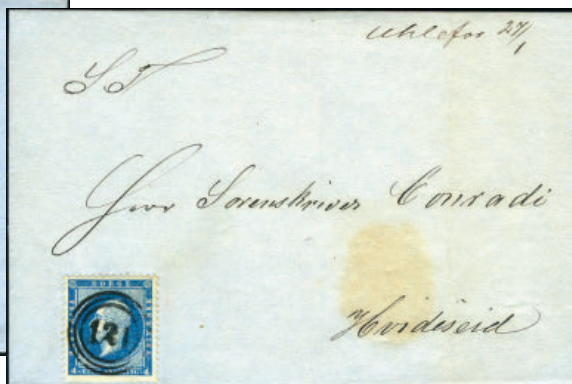 Uhlefos 27/1
S T
Herr Sorenskriver Conradi
Hvideseid
NORGE
121
4 4